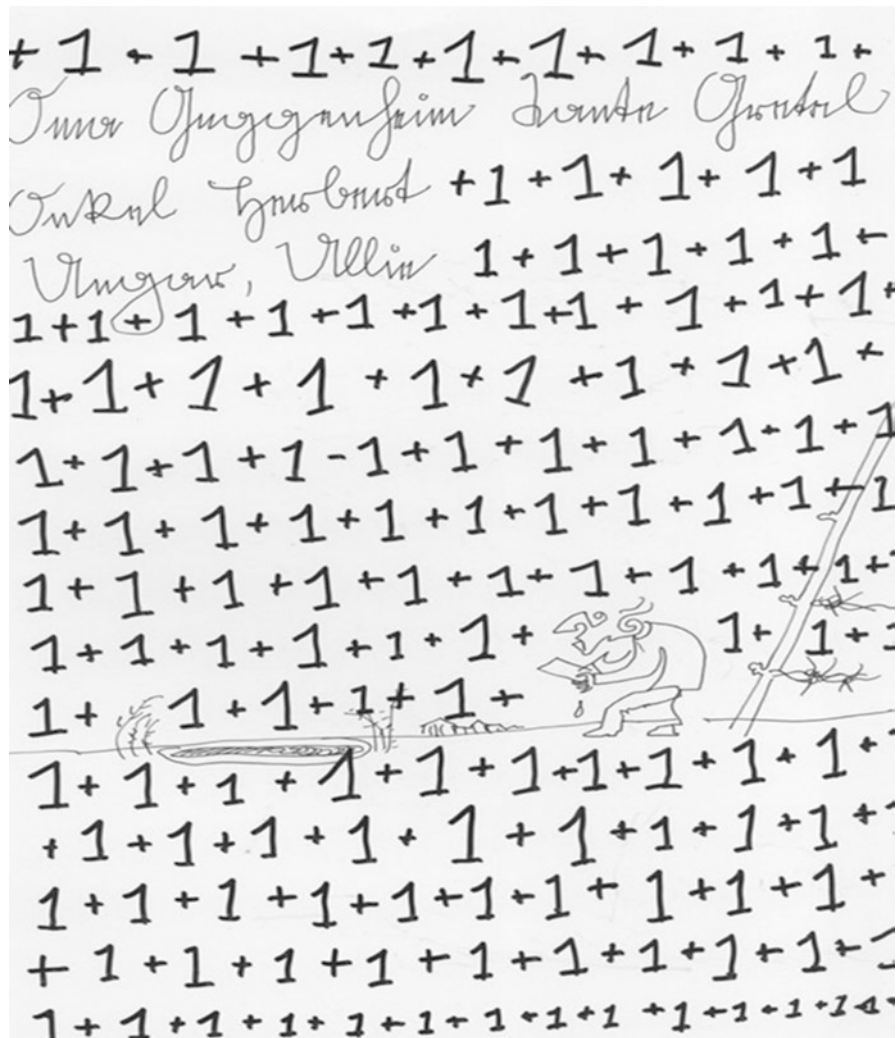 + 1 + 1 + 1 + 1 + 1 + 1 + 1 + 1 + 1 +
Oma Guggenheim Tante Gretel
Onkel Herbert + 1 + 1 + 1 + 1 + 1
Ungar, Ullie 1 + 1 + 1 + 1 + 1 +
1 + 1 + 1 + 1 + 1 + 1 + 1 + 1 + 1 + 1 + 1 +
1 + 1 + 1 + 1 + 1 + 1 + 1 + 1 + 1 +
1 + 1 + 1 + 1 - 1 + 1 + 1 + 1 + 1 + 1 + 1
1 + 1 + 1 + 1 + 1 + 1 + 1 + 1 + 1 + 1 + 1
1 + 1 + 1 + 1 + 1 + 1 + 1 + 1 + 1 + 1 +
1 + 1 + 1 + 1 + 1 + 1 + 1 + 1 + 1
1 + 1 + 1 + 1 + 1 +
1 + 1 + 1 + 1 + 1 + 1 + 1 + 1 + 1 + 1 +
+ 1 + 1 + 1 + 1 + 1 + 1 + 1 + 1 + 1 +
1 + 1 + 1 + 1 + 1 + 1 + 1 + 1 + 1 + 1 +
+ 1 + 1 + 1 + 1 + 1 + 1 + 1 + 1 + 1 + 1
1 + 1 + 1 + 1 + 1 + 1 + 1 + 1 + 1 + 1 + 1 + 1 + 1 + 1 +